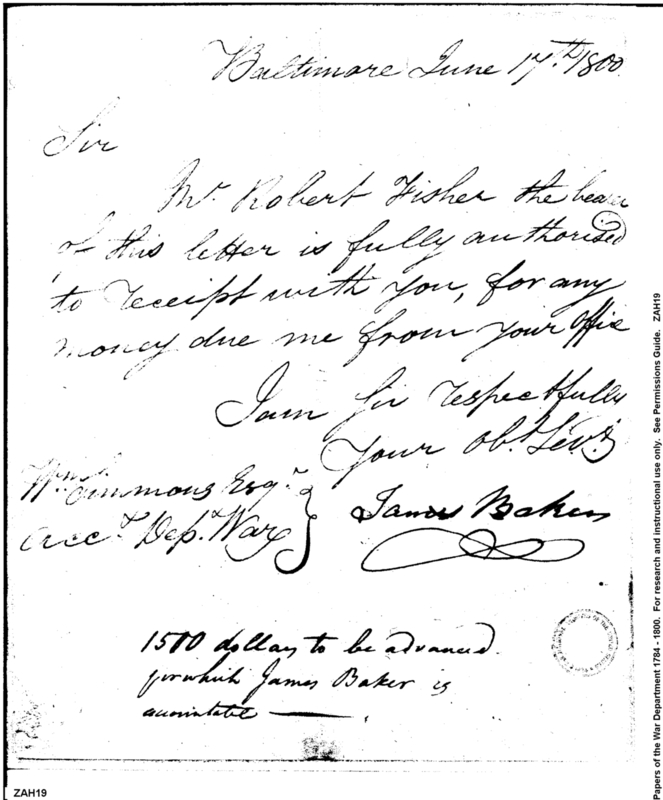 Baltimore June 17th. 1800
Sir
Mr. Robert Fisher the bearer
of this letter is fully authorised
to receipt with you, for any
money due me from your office
I am Sir respectfully
Your Obt. Servt.
James Baker
Wm. Simmons Esqr.
Acct. Dept. War
1500 dollars to be advanced
for which James Baker is
accountable
ZAH19
Papers of the War Department 1784 - 1800. For research and instructional use only. See Permissions Guide. ZAH19